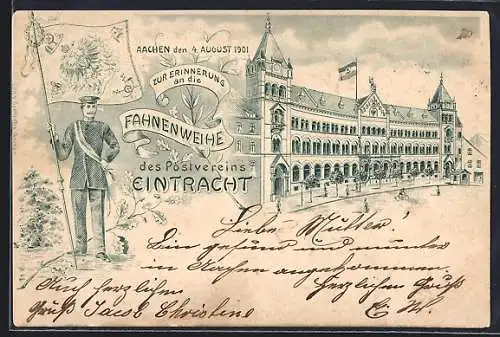 AACHEN den 4. AUGUST 1901
ZUR ERINNERUNG
an die
FAHNENWEIHE
des Postvereins
EINTRACHT
Liebe Mutter!
Bin gesund und munter
in Aachen angekommen.
Herzlichen Gruß
Auch herzlichen
Gruß Jacob Christine